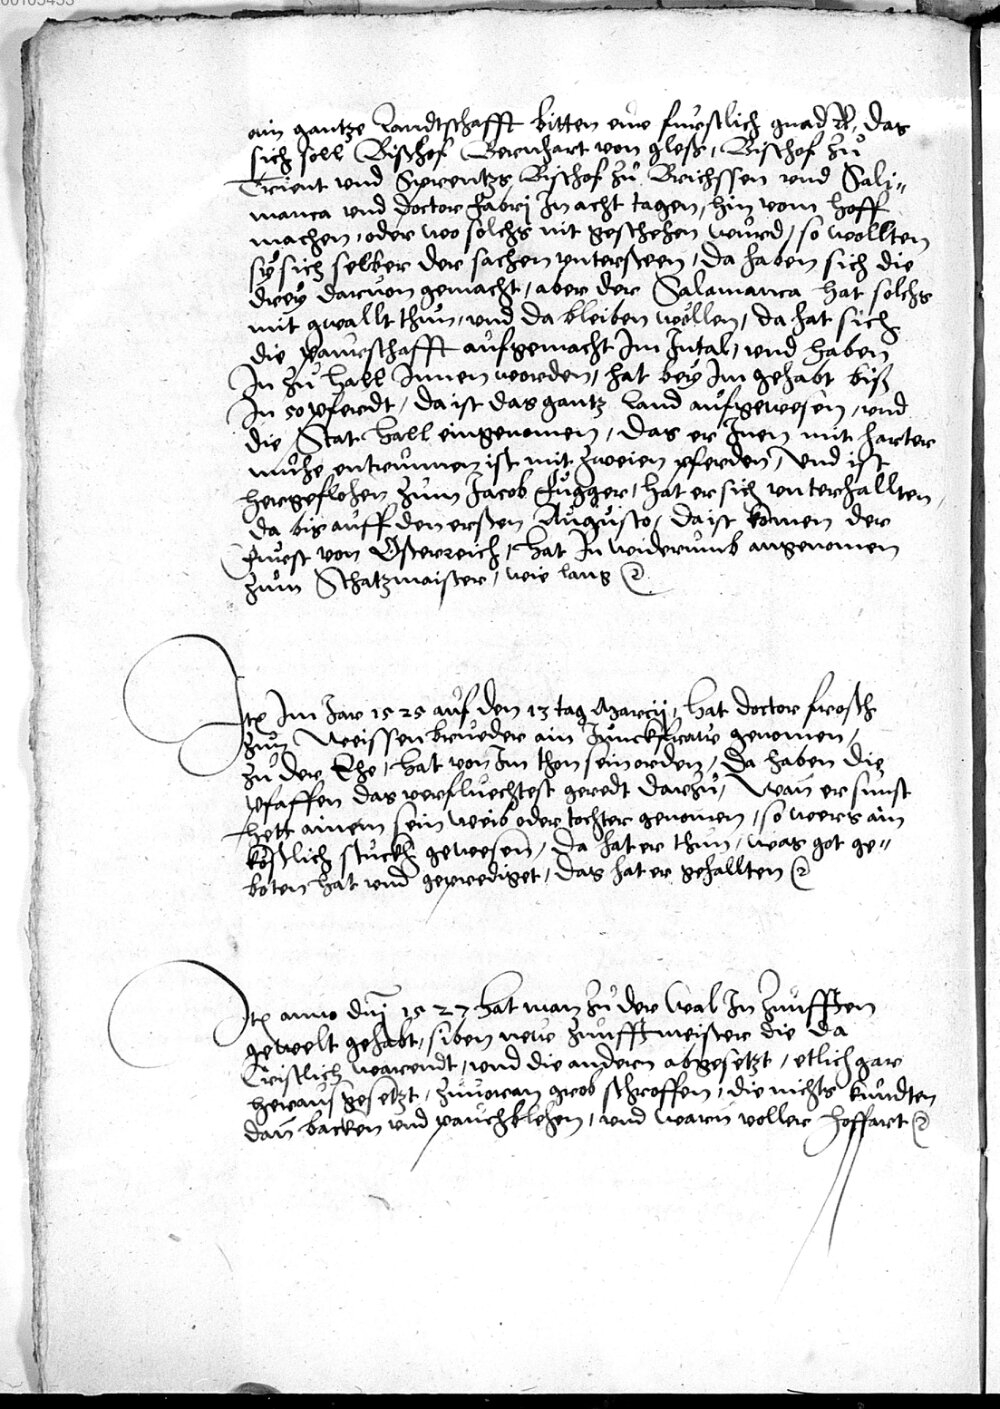 00105453
ain gantze Landtschafft bitten eur furstlich gnad etc, das
sich soll Bischof Bernhart von gless, Bischof zu
Trient vnd Sprentzs Bischof zu Brichssen vnd Sali-
manca vnd doctor fabrj In acht tagen, hin vom hoff
machen, oder wo solchs nit geschehen wurd, so wollten
sy sich selber der sachen vntersteen, da haben sich die
drey daruon gemacht, aber der Salamanca hat solchs
mit gwallt thun, vnd da bleiben wöllen, da hat sich
die paurschafft aufgemacht Im Intal, vnd haben
In zu hall Innen worden, hat bey Im gehabt biß
In 50 pferdt, da ist das gantz land aufgewesen, vnd
die Stat hall eingenomen, das er Inen mit harter
muhe entrunnen ist mit zweien pferden, Vnd ist
hergeflohen zum Jacob Fugger, hat er sich vnterhallten,
da bis auff den ersten Augusto, da ist komen der
Furst von Österreich, hat In widerumb angenomen
zum Schatzmaister, wie lang etc
Itm Im Jar 1525 auf den 13 tag Marcij, hat doctor frosch
zun Weissenbrueder ain Junckfraw genomen,
zu der Ehe, hat von Im thon sein orden, da haben die
pfaffen das verfluechtest geredt darzu, Wan er sunst
hett ainem sein weib oder tochter genomen, so wers ain
köstlich stuckh gewesen, da hat er thun, was got ge-
boten hat vnd geprediget, das hat er gehallten etc
Itm anno dni 1527 hat man zu der wal In Zunfften
gewelt gehabt, siben new Zunfftmeister die da
Cristlich warendt, vnd die andern abgesetzt, etlich gar
heraus gesetzt, zuuoran grob schroffen, die nichts kundten
dan backen vnd pauchblehen, vnd warn voller hoffart etc